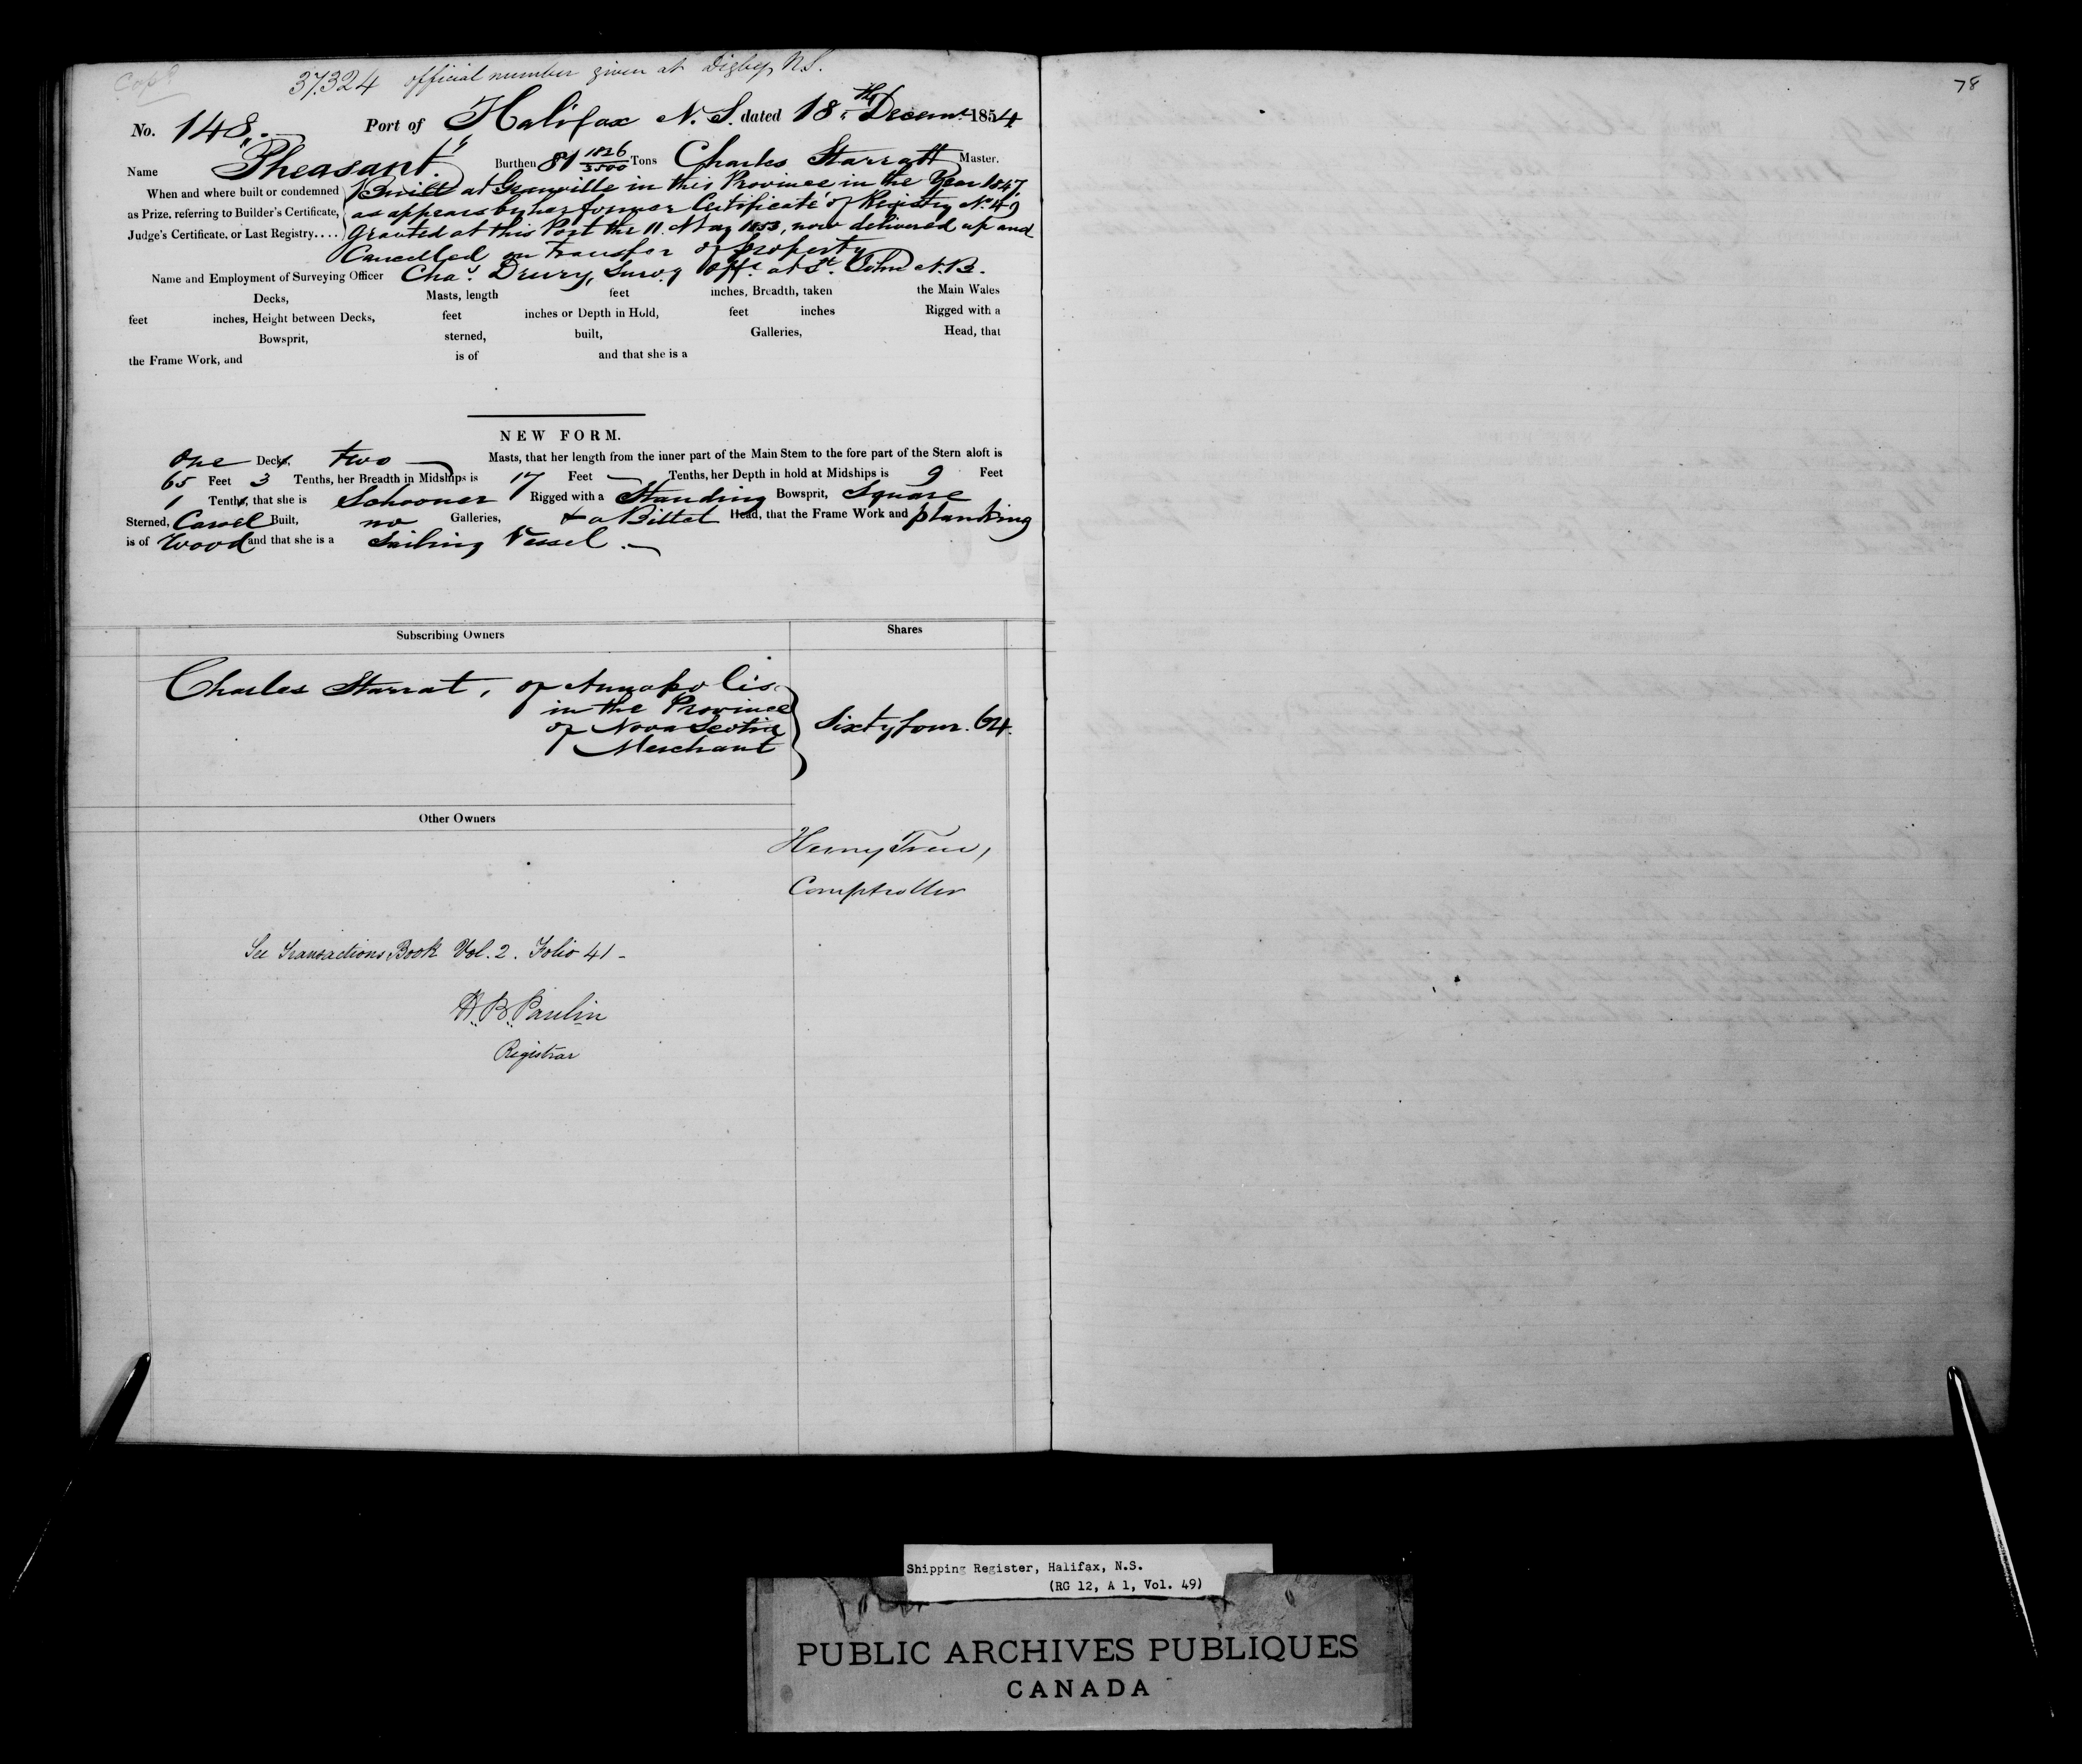 Copd
37324 official number given at Digby, N.S.
78
No. 148. Port of Halifax N.S. dated 18th Decemr 1854
Name "Pheasant." Burthen 81 1826/3500 Tons Charles Starratt Master.
When and where built or condemned as Prize, referring to Builder's Certificate, Judge's Certificate, or Last Registry....
Built at Granville in this Province in the Year 1847.
as appears by her former Certificate of Registry No. 49
granted at this Port the 11. May 1853, now delivered up and
Cancelled on transfer of property
Name and Employment of Surveying Officer Chas. Drury, Survg Offr. at St. John N.B.
Decks, Masts, length feet inches, Breadth, taken the Main Wales
feet inches, Height between Decks, feet inches or Depth in Hold, feet inches Rigged with a
Bowsprit, sterned, built, Galleries, Head, that
the Frame Work, and is of and that she is a
NEW FORM.
One Decks, two Masts, that her length from the inner part of the Main Stem to the fore part of the Stern aloft is
65 Feet 3 Tenths, her Breadth in Midships is 17 Feet — Tenths, her Depth in hold at Midships is 9 Feet
1 Tenths, that she is Schooner Rigged with a Standing Bowsprit, Square
Sterned, Carvel Built, no Galleries, & a Billet Head, that the Frame Work and planking
is of Wood and that she is a Sailing Vessel.
Subscribing Owners Shares
Charles Starrat, of Annapolis
in the Province
of Nova Scotia
Merchant
Sixty four. 64.
Other Owners
Henry Trew,
Comptroller
See Transactions Book Vol. 2. Folio 41 -
H. B. Paulin
Registrar
Shipping Register, Halifax, N.S.
(RG 12, A 1, Vol. 49)
PUBLIC ARCHIVES PUBLIQUES
CANADA